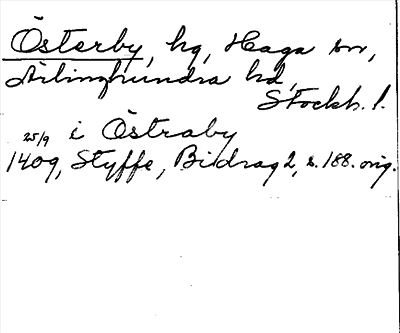 Österby, hg, Haga sn,
Ärlinghundra hd,
Stockh. l.
25/9 i Östraby
1409, Styffe, Bidrag 2, s. 188. orig.